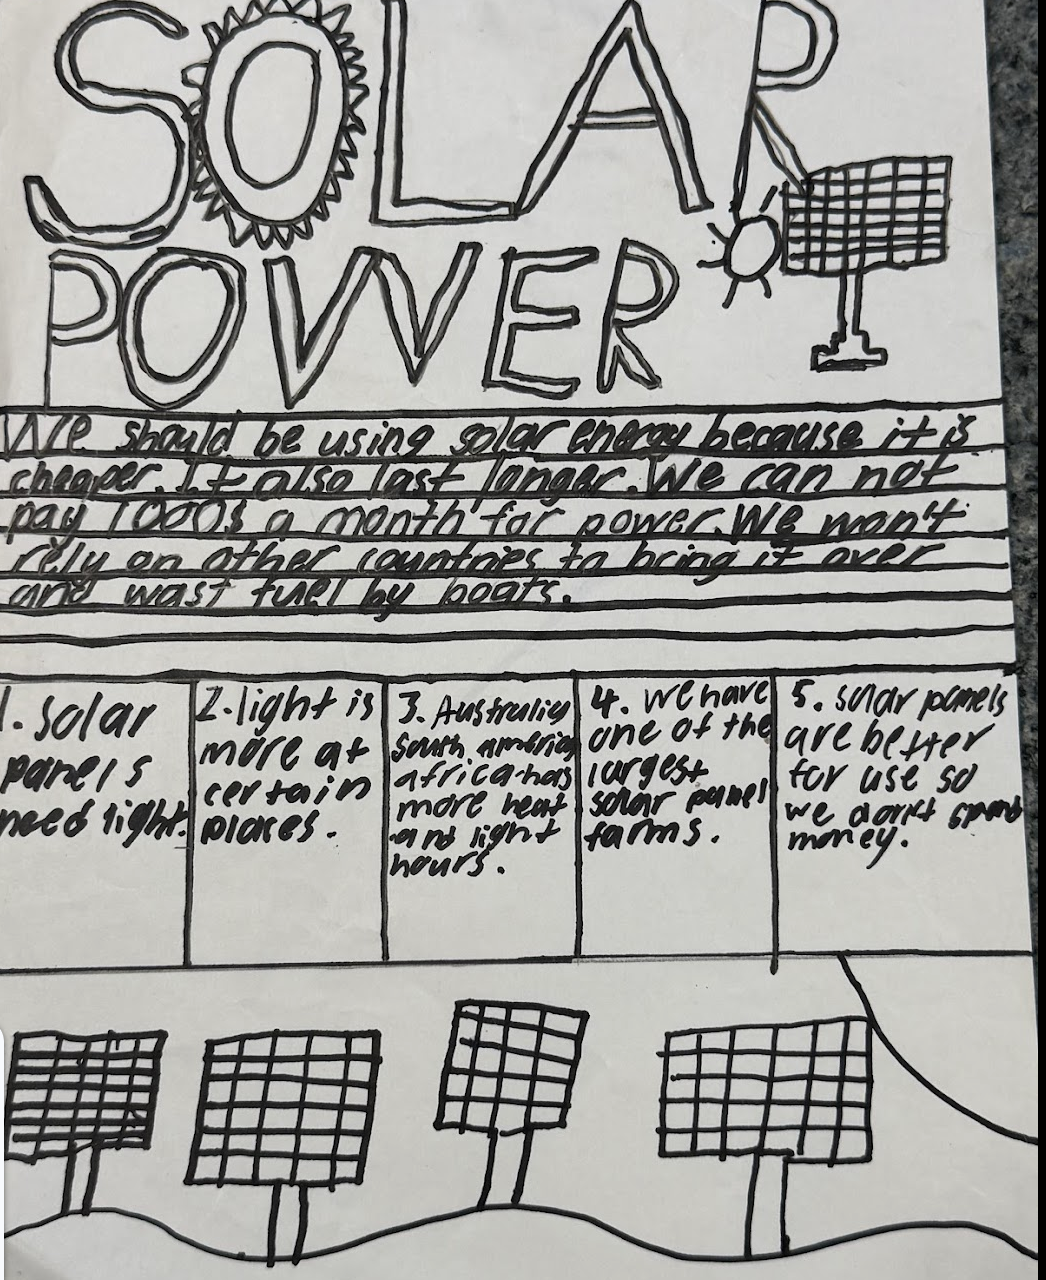 SOLAR
POWER
We should be using solar energy because it is
cheaper. It also last longer. We can not
pay 1000$ a month for power. We won't
rely on other countries to bring it over
and wast fuel by boats.
1. Solar
panels
need light.
2. light is
more at
certain
places.
3. Australia
south america
africa has
more heat
and light
hours.
4. we have
one of the
largest
solar panel
farms.
5. solar panels
are better
for use so
we don't spend
money.